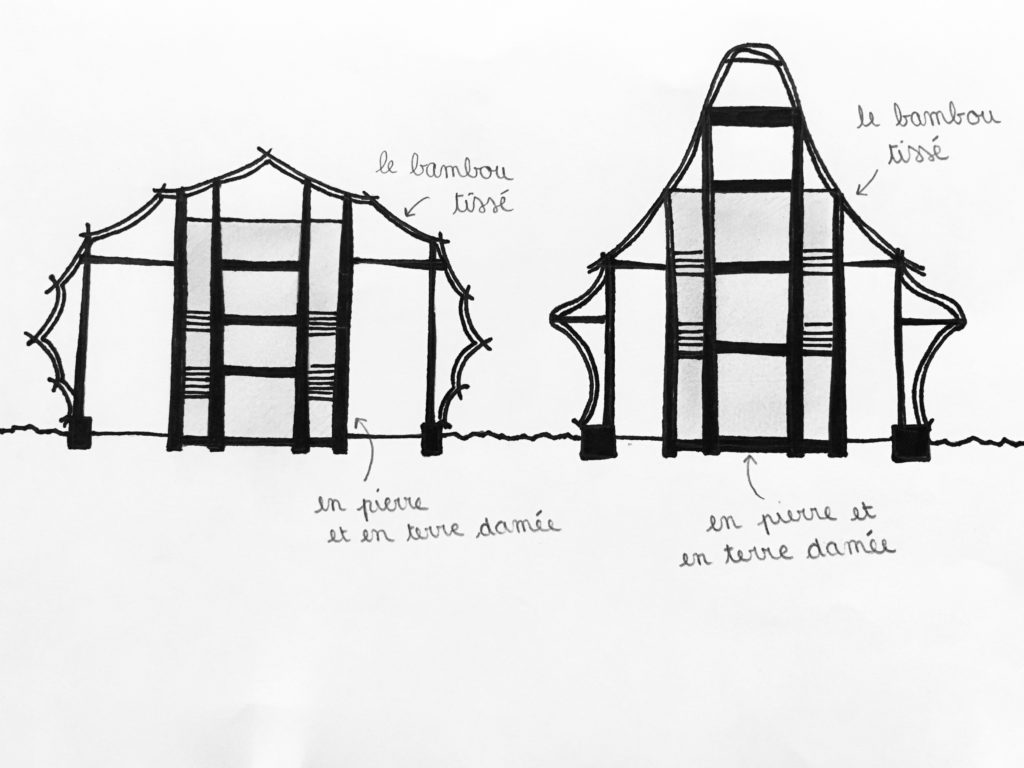 le bambou
tissé
le bambou
tissé
en pierre
et en terre damée
en pierre et
en terre damée